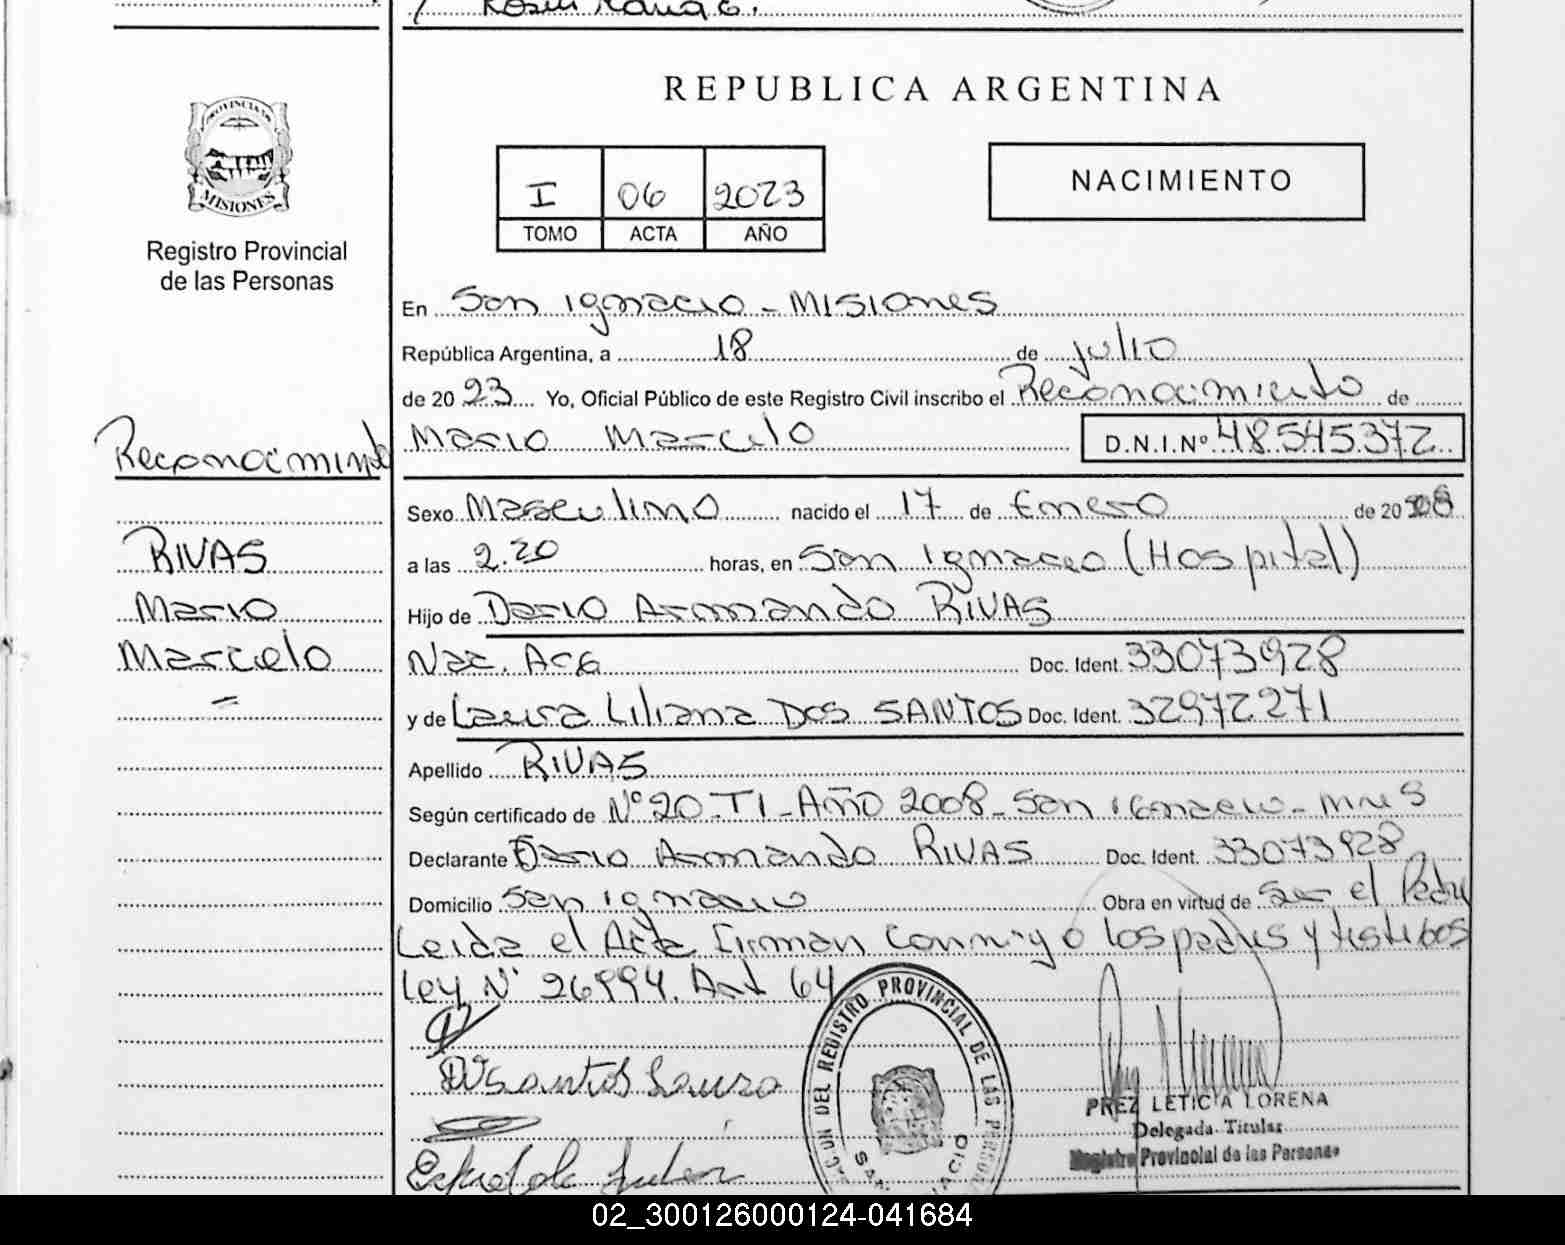 REPUBLICA ARGENTINA
PROVINCIA DE
MISIONES
Registro Provincial
de las Personas
I 06 2023
TOMO ACTA AÑO
NACIMIENTO
En San Ignacio - Misiones
República Argentina, a 18 de julio
de 2023 Yo, Oficial Público de este Registro Civil inscribo el Reconocimiento de
Mario Marcelo D.N.I.Nº 48545372
Reconocimiento
RIVAS
Mario
Marcelo
Sexo Masculino nacido el 17 de Enero de 2008
a las 2.20 horas, en San Ignacio (Hospital)
Hijo de Dario Armando RIVAS
Nac. Arg Doc. Ident. 33073928
y de Laura Liliana DOS SANTOS Doc. Ident. 32972271
Apellido RIVAS
Según certificado de Nº 20-TI-Año 2008-San Ignacio-Mnes
Declarante Dario Armando RIVAS Doc. Ident. 33073928
Domicilio San Ignacio Obra en virtud de Ser el Padre
Leida el Acta firman conmigo los padres y testigos
Ley Nº 26994. Art 64
Dos Santos Laura
DEL REGISTRO PROVINCIAL DE LAS PERSONAS
LETICIA LORENA
Delegada Titular
Registro Provincial de las Personas
02_300126000124-041684